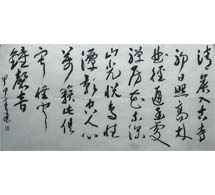 清晨入古寺
初日照高林
曲径通幽處
禅房花木深
山光悦鸟性
潭影空人心
萬籁此俱
寂惟聞
鐘磬音
甲午